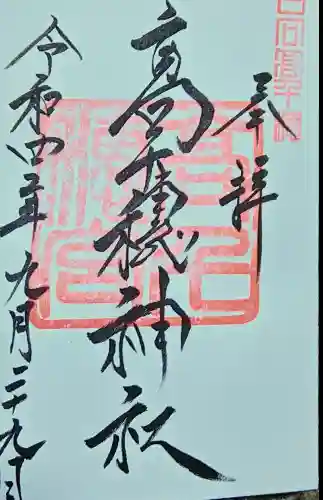 日向高千穂
奉拝
高千穂神社
令和四年九月二十九日